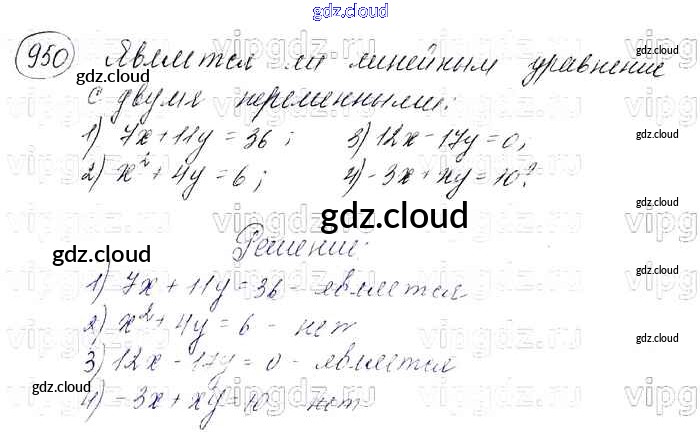 gdz.cloud
950 Является ли линейным уравнение
с двумя переменными:
1) 7x + 11y = 36; 3) 12x - 17y = 0;
2) x² + 4y = 6; 4) -3x + xy = 10?
gdz.cloud
gdz.cloud
gdz.cloud
gdz.cloud
gdz.cloud
Решение:
1) 7x + 11y = 36 - является
2) x² + 4y = 6 - нет
3) 12x - 17y = 0 - является
gdz.cloud
gdz.cloud
4) -3x + xy = 10 - нет